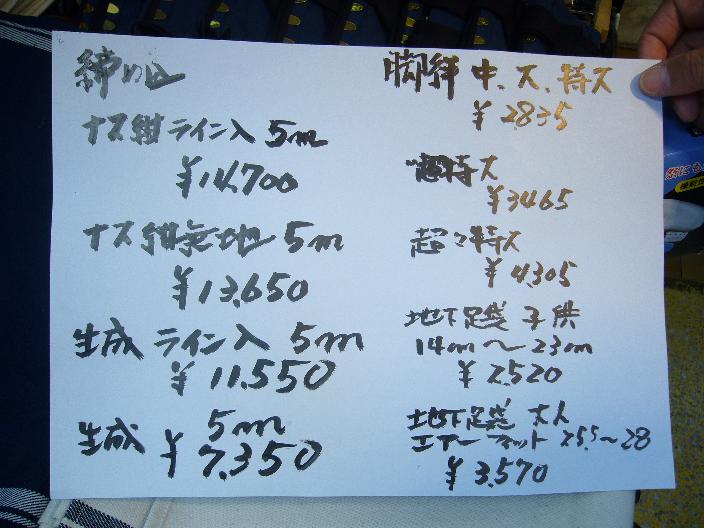 締め込
ナス紺 ライン入 5m
¥14,700
ナス紺無地 5m
¥13,650
生成 ライン入 5m
¥11,550
生成 5m
¥7,350
脚絆 中、大、特大
¥2835
超特大
¥3465
超々特大
¥4,305
地下足袋 子供
14cm〜23cm
¥2,520
地下足袋 大人
エアーフィット 25.5〜28
¥3,570
祭にも